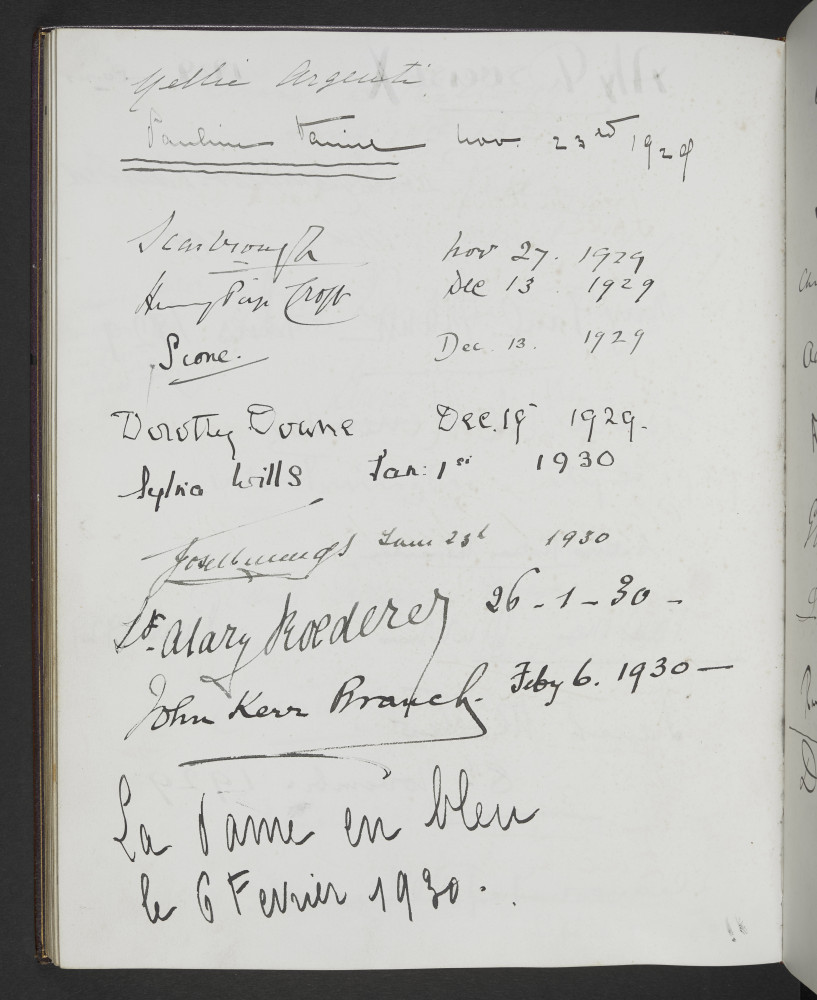 Nellie Argenti
Pauline Nov. 23rd 1929
Scarbrough Nov 27. 1929
Henry Page Croft Dec 13 1929
Scone. Dec. 13. 1929
Dorothy Downe Dec. 19 1929.
Sylvia Wills Jan: 1st 1930
1930
Roederer 26-1-30-
John Kerr Branch. Feby 6. 1930—
La Dame en bleu
le 6 Fevrier 1930.